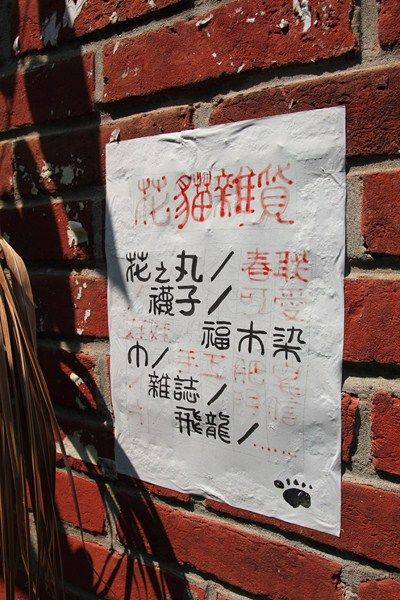 花貓雜貨
花之丸/春联
襪子/可愛
福木染
巾/手工肥皂
雜誌/明信
片 飛龍/......